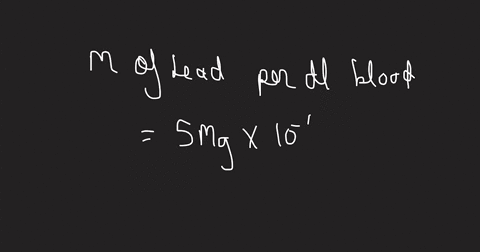 m of Lead per dl blood
= 5Mg x 10⁻¹